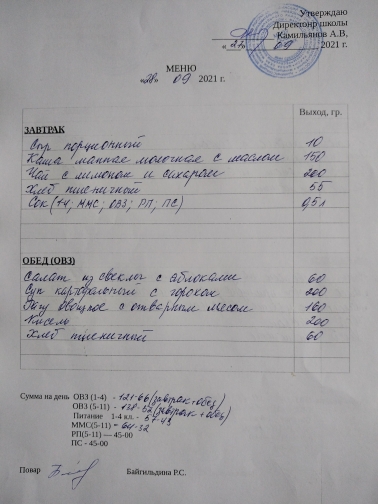 Утверждаю
Директор школы
Камильянов А.В,
«27» 09 2021 г.
МЕНЮ
«28» 09 2021 г.
Выход, гр.
ЗАВТРАК
Сыр порционный 10
Каша манная молочная с маслом 150
Чай с лимоном и сахаром 200
Хлеб пшеничный 55
Сок (1-4; ММС; ОВЗ; РП; ПС) 0,5л
ОБЕД (ОВЗ)
Салат из свеклы с яблоками 60
Суп картофельный с горохом 200
Рагу овощное с отварным мясом 160
Кисель 200
Хлеб пшеничный 60
Сумма на день ОВЗ (1-4) - 121-66 (завтрак+обед)
ОВЗ (5-11) - 138-52 (завтрак+обед)
Питание 1-4 кл. - 57-43
ММС(5-11) - 64-32
РП(5-11) — 45-00
ПС - 45-00
Повар Байгильдина Р.С.